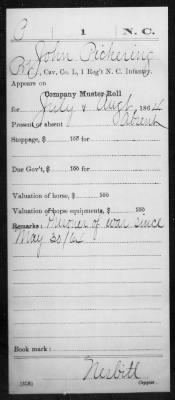 P | 1 | N. C.
John Pickering
Pvt, Cav. Co. I., 1 Reg't N. C. Infantry.
Appears on
Company Muster Roll
for July & Aug, 1864
Present or absent Absent
Stoppage, $ 100 for
Due Gov't, $ 100 for
Valuation of horse, $ 100
Valuation of horse equipments, $ 100
Remarks: Prisoner of war since
May 30/62
Book mark:
Nesbitt
(358) Copyist.